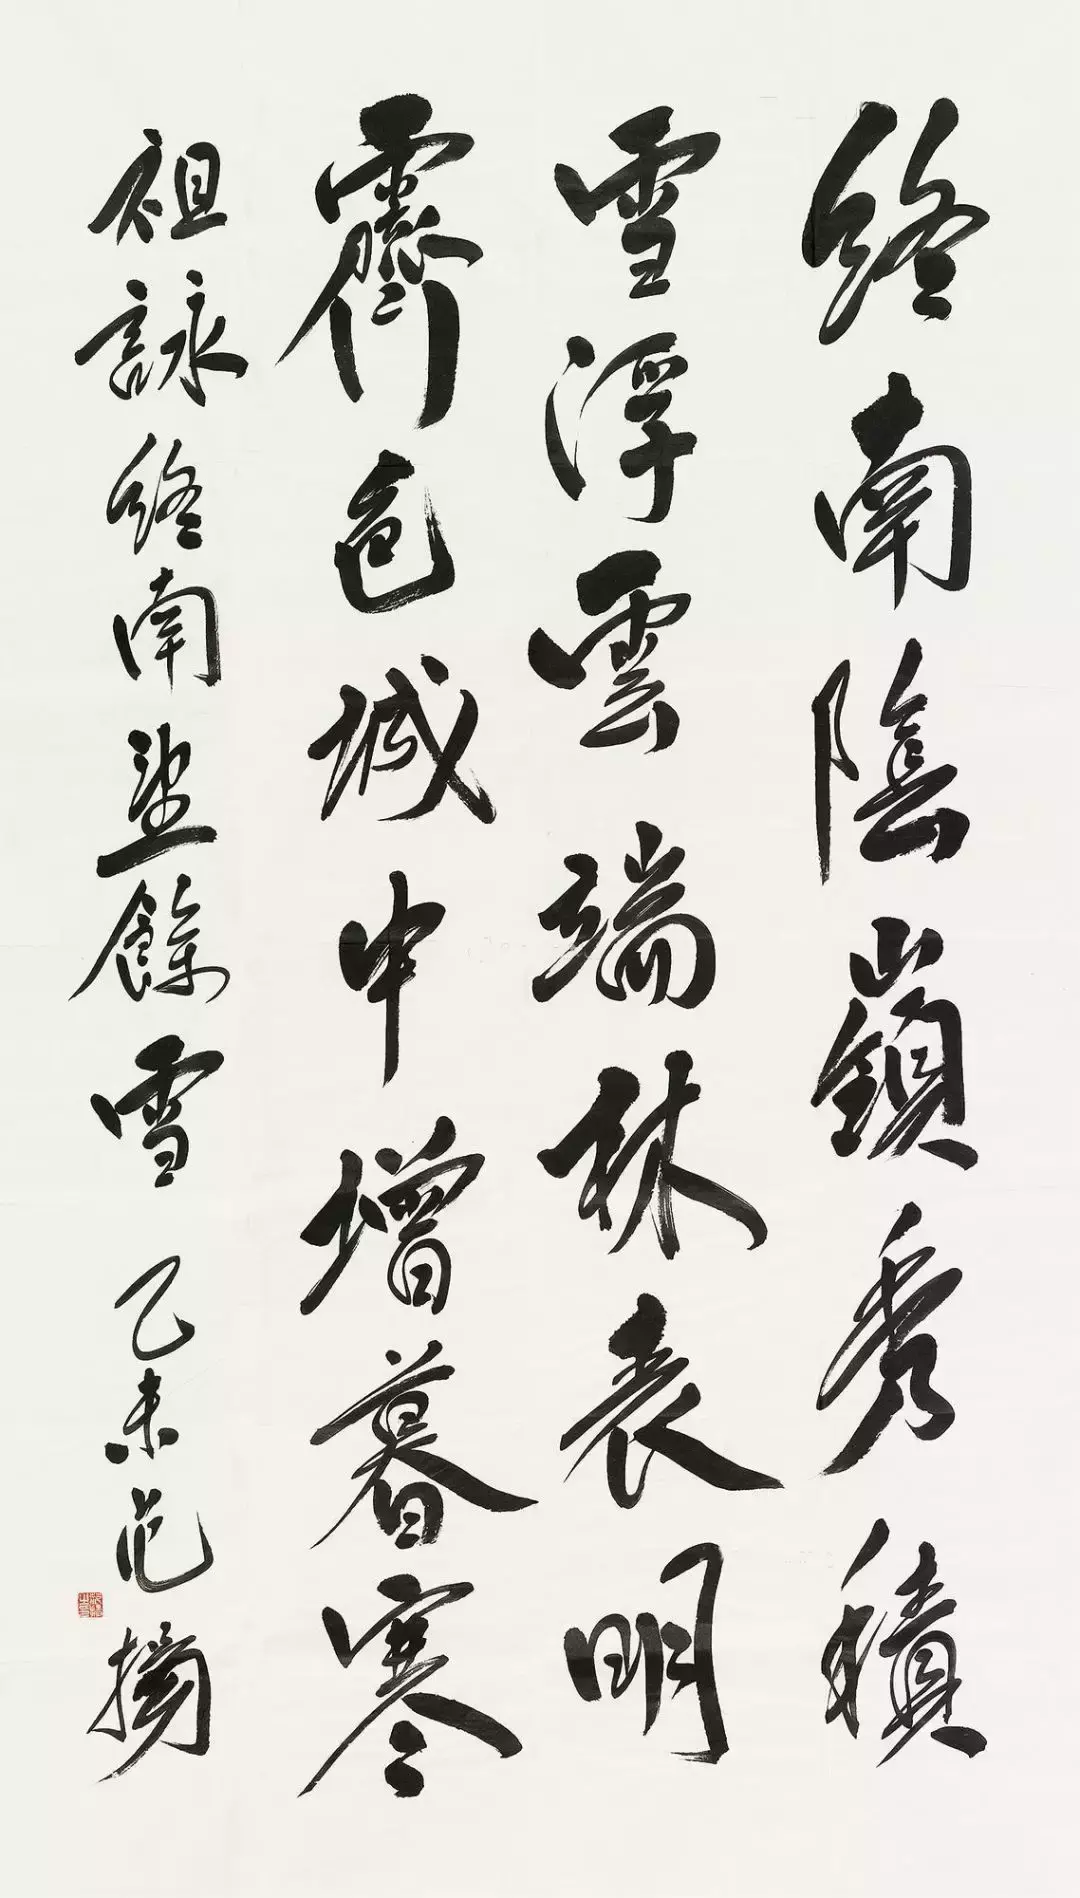 終南陰嶺秀積
雪浮雲端林表明
霽色城中增暮寒
祖詠終南望餘雪 乙未范揚